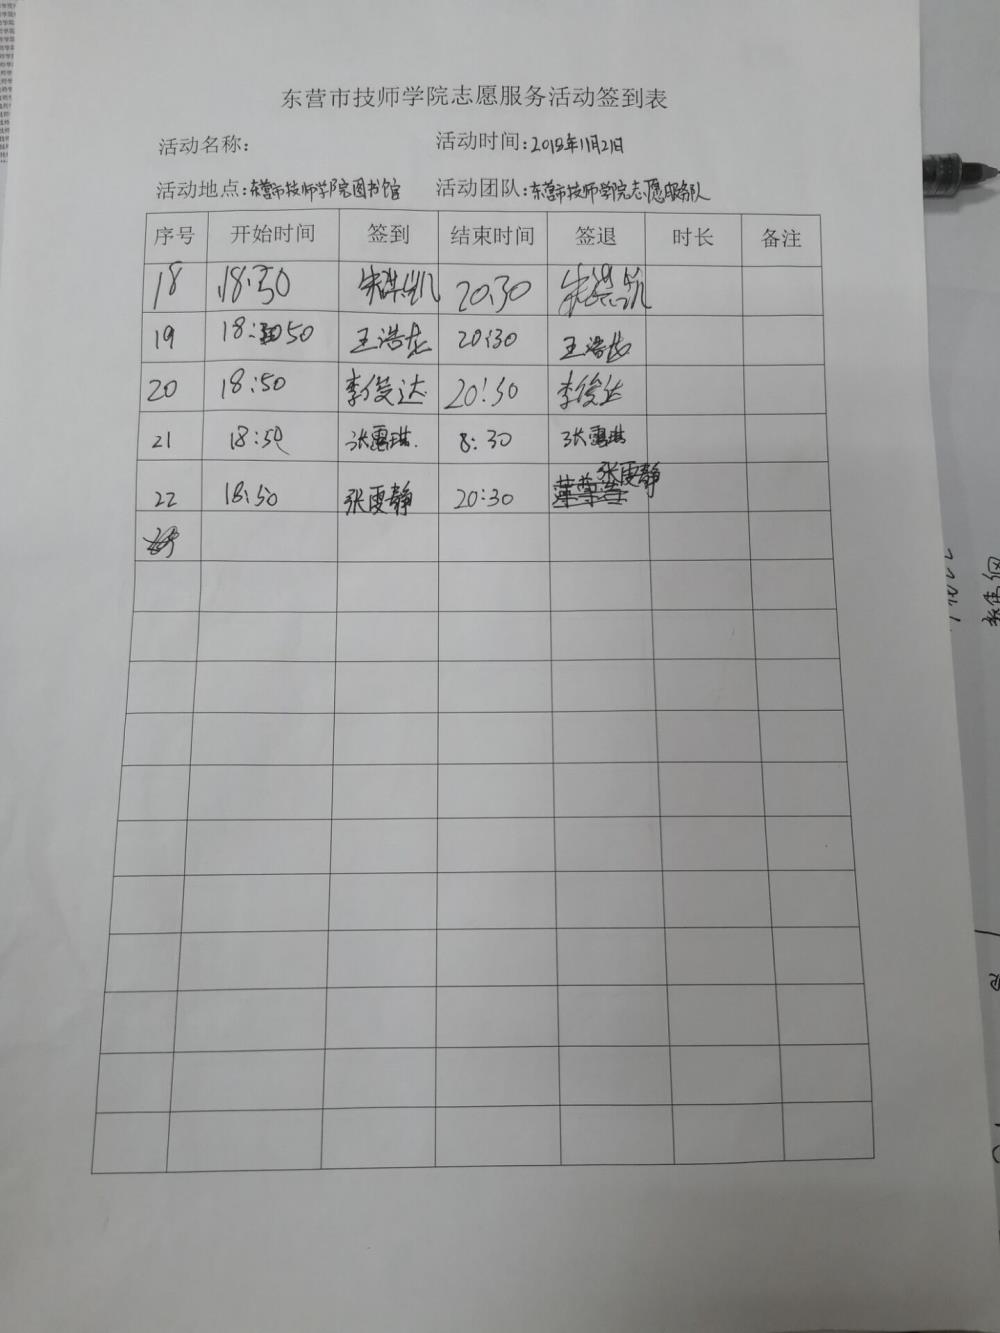 东营市技师学院志愿服务活动签到表
活动名称: 活动时间:2019年11月21日
活动地点:东营市技师学院图书馆 活动团队:东营市技师学院志愿服务队
序号 开始时间 签到 结束时间 签退 时长 备注
18 18:50 20:30
19 18:50 王浩龙 20:30 王浩龙
20 18:50 李俊达 20:30 李俊达
21 18:50 张露琪 8:30 张露琪
22 18:50 张雯静 20:30 张雯静